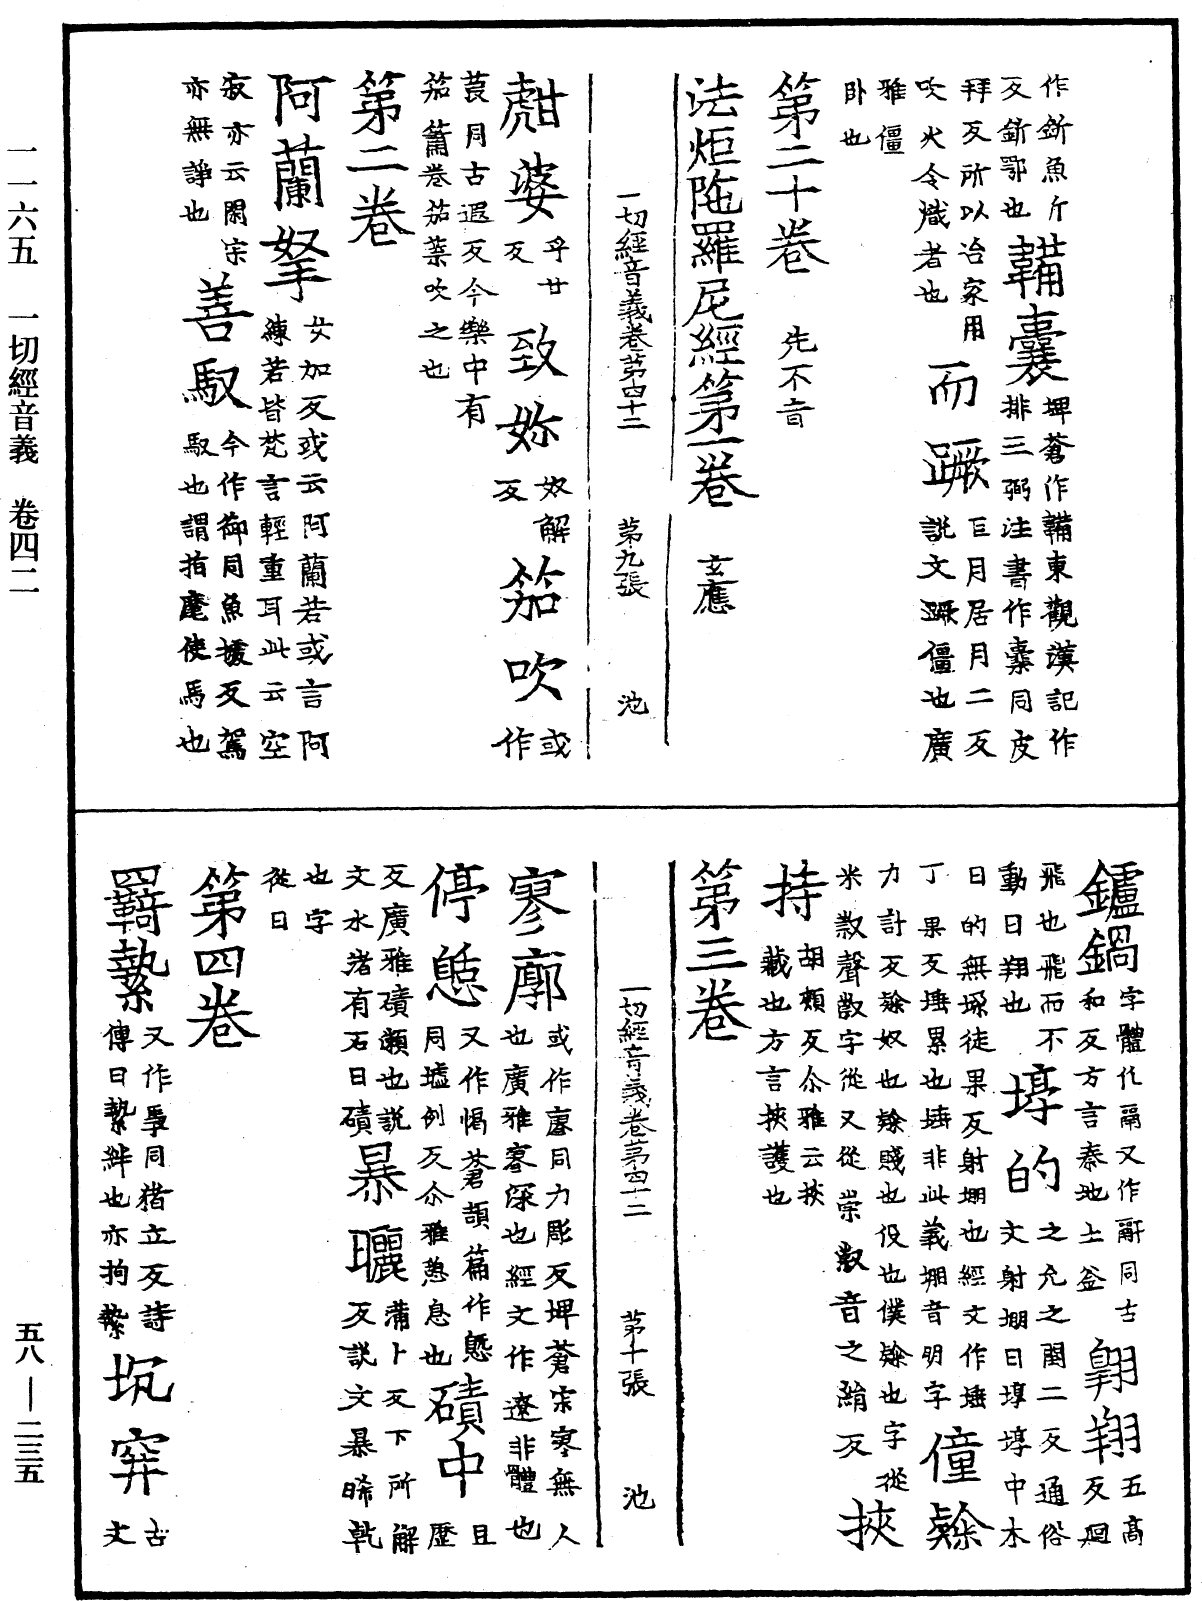 作斱魚斤
反斱鄂也
鞴囊
埤蒼作鞴東觀漢記作
排三弼注書作橐同皮
拜反所以冶家用
吹火令熾者也
而蹶
巨月居月二反
說文蹶僵也廣
雅僵
卧也
第二十卷 先不音
法炬陁羅尼經第一卷 玄應
一切經音義卷第四十二 第九張 池
𧇊婆
乎廿
反
致妳
奴解
反
笳吹
或
作
葭同古遐反今樂中有
笳簫卷笳葉吹之也
第二卷
阿蘭拏
女加反或云阿蘭若或言阿
練若皆梵言輕重耳此云空
寂亦云閑宗
亦無諍也
善馭
今作御同魚據反駕
馭也謂指麾使馬也
鑪鍋
字體仇鬲又作䰛同古
和反方言秦地土釜
翱翔
五高
反迴
飛也飛而不
動曰翔也
埻的
之允之閏二反通俗
文射堋曰埻埻中木
曰的無垛徒果反射堋也經文作埵
丁果反埵累也埵非此義堋音明字
僮隸
力計反隸奴也隸賤也役也僕隸也字從
米㕞聲㕞字從又從祟㕞音之芮反
挾
持
胡頰反尒雅云挾
藏也方言挾護也
第三卷
一切經音義卷第四十二 第十張 池
寥廓
或作廫同力彫反埤蒼寥寥無人
也廣雅寥深也經文作遼非體也
停憩
又作愒蒼頡篇作憇
同墟例反尒雅憩息也
磧中
且
歷
反廣雅磧瀨也說
文水渚有石曰磧
暴曬
蒲卜反下所解
反說文暴晞乾
也字
從日
第四卷
羇縶
又作馽同猪立反詩
傳曰縶絆也亦拘縶
坑穽
古
文
一一六五 一切經音義 卷四二
五八—二三五